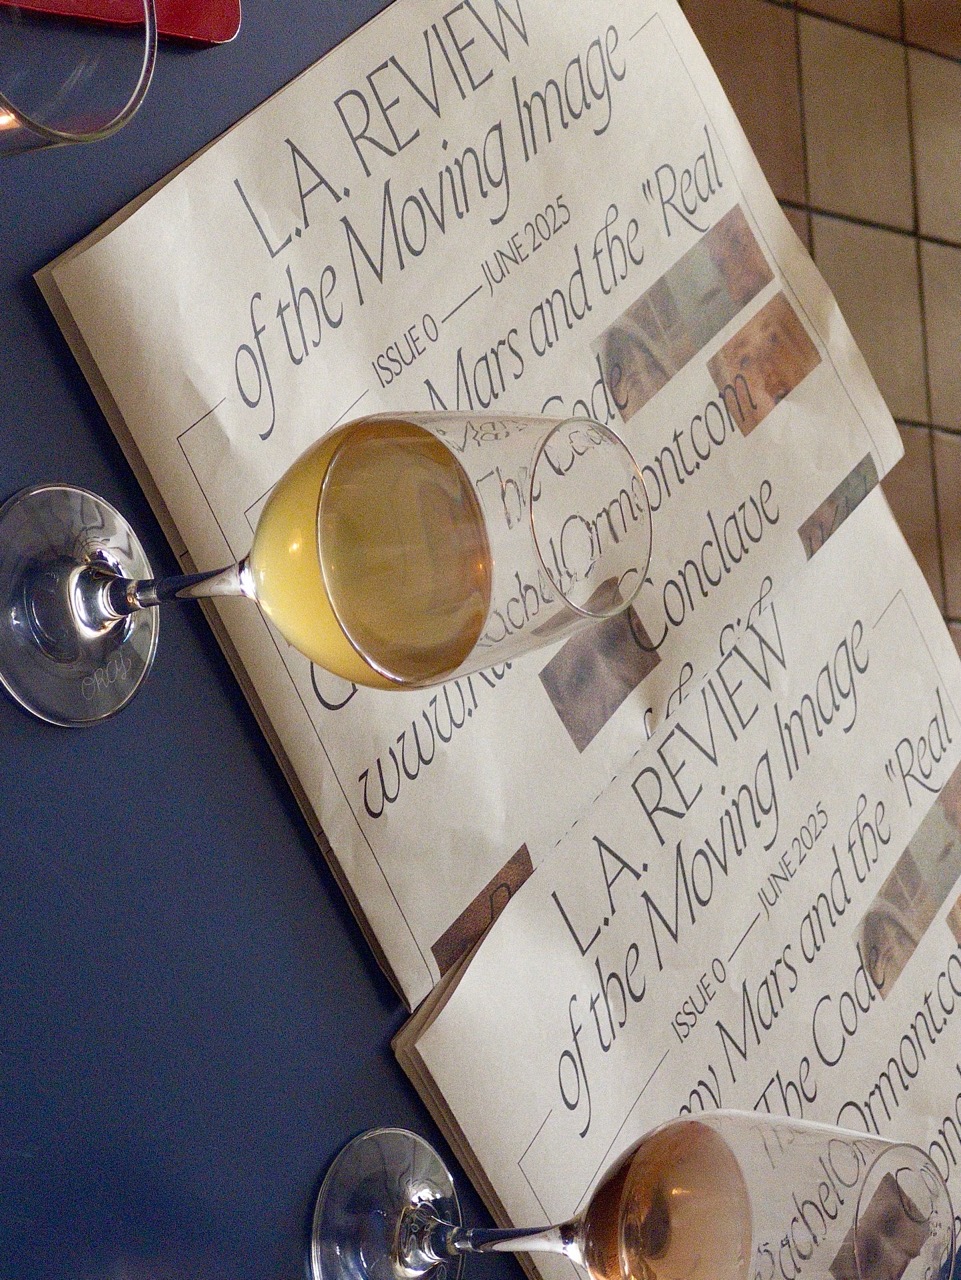 L.A. REVIEW
of the Moving Image
ISSUE 0 — JUNE 2025
Mars and the "Real
The Code
www.RachelOrmont.com
Conclave
L.A. REVIEW
of the Moving Image
ISSUE 0 — JUNE 2025
my Mars and the "Real
The Code
RachelOrmont.co
Con